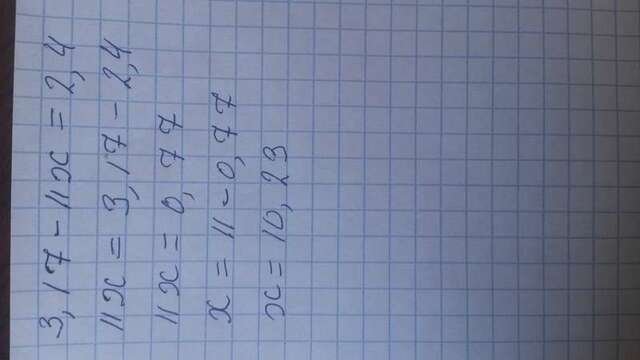 3,17 - 11x = 2,4
11x = 3,17 - 2,4
11x = 0,77
x = 11 - 0,77
x = 10,23